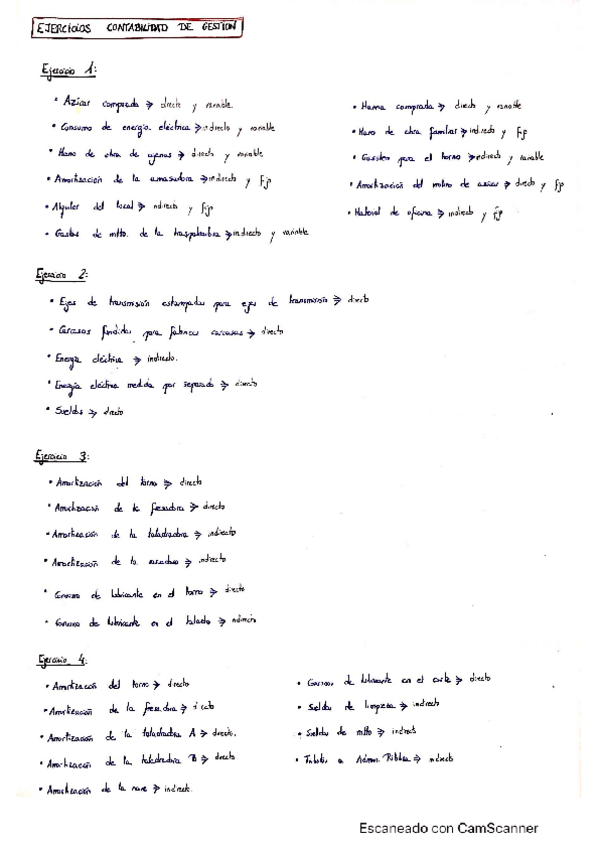 EJERCICIOS CONTABILIDAD DE GESTION
Ejercicio 1:
• Azúcar comprada → directo y variable.
• Consumo de energía eléctrica → indirecto y variable
• Mano de obra de ajenos → directo y variable
• Amortización de la amasadora → indirecto y fijo
• Alquiler del local → indirecto y fijo
• Gastos de mtto. de la → indirecto y variable
• Harina comprada → directo y variable
• Mano de obra familiar → indirecto y fijo
• Gasoleo para el horno → indirecto y variable
• Amortización del molino de azúcar → directo y fijo
• Material de oficina → indirecto y fijo
Ejercicio 2:
• Ejes de transmisión estampados para ejes de transmisión → directo
• Carcasas fundidas para fabricar carcasas → directo
• Energía eléctrica → indirecto.
• Energía eléctrica medida por separado → directo
• Sueldos → directo
Ejercicio 3:
• Amortización del torno → directo
• Amortización de la fresadora → directo
• Amortización de la taladradora → indirecto
• Amortización de la → indirecto
• Consumo de lubricante en el torno → directo
• Consumo de lubricante en el taladro → indirecto
Ejercicio 4:
• Amortización del torno → directo
• Amortización de la fresadora → directo
• Amortización de la taladradora A → directo.
• Amortización de la taladradora B → directo
• Amortización de la nave → indirecto.
• Consumo de lubricante en el corte → directo
• Sueldos de limpieza → indirecto
• Sueldos de mtto → indirecto
• Tributos a Admon. Pública → indirecto
Escaneado con CamScanner